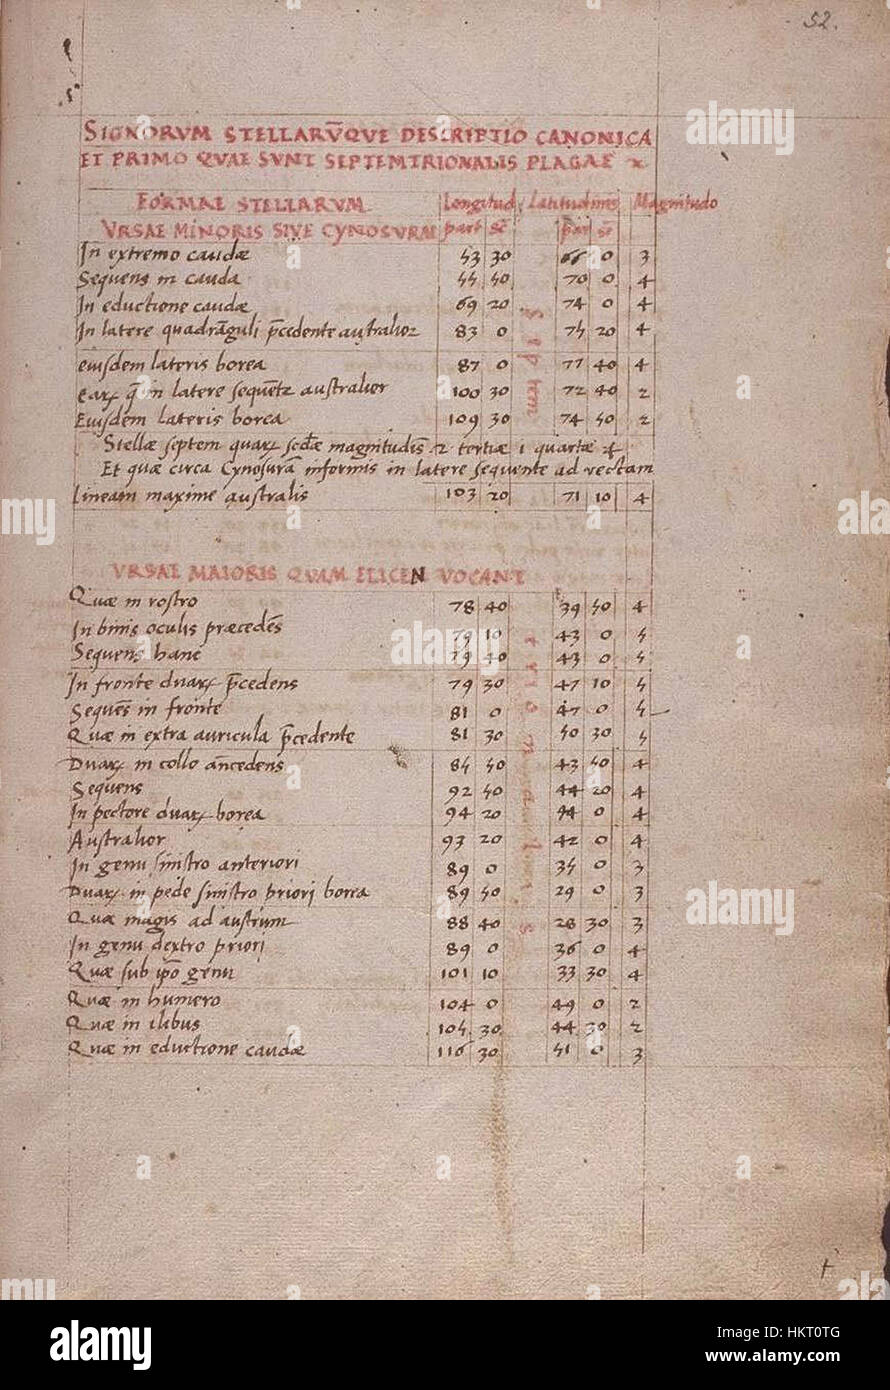 52.
SIGNORVM STELLARV̄QVE DESCRIPTIO CANONICA
ET PRIMO QVAE SVNT SEPTEMTRIONALIS PLAGAE
FORMAE STELLARVM Longitud Latitudinis Magnitudo
VRSAE MINORIS SIVE CYNOSVRAE part sc̄ par sc̄
In extremo caudæ 53 30 66 0 3
Sequens in cauda 55 50 70 0 4
In eductione caudæ 69 20 74 0 4
In latere quadrāguli p̄cedente australior 83 0 75 20 4
eiusdem lateris borea 87 0 77 40 4
Earꝝ q̄ in latere sequēte australior 100 30 72 40 2
Eiusdem lateris borea 109 30 74 50 2
Stellæ septem quarꝝ secd̄æ magnitudīs 2 tertiæ 1 quartæ 4
Et quæ circa Cynosurā informis in latere sequente ad rectam
Lineam maxime australis 103 20 71 10 4
Septem
VRSAE MAIORIS QVAM ELICEN VOCANT
Quæ in rostro 78 40 39 50 4
In binis oculis præcedēs 79 10 43 0 5
Sequens hanc 79 40 43 0 5
In fronte duarꝝ p̄cedens 79 30 47 10 5
Sequēs in fronte 81 0 47 0 5
Quæ in extra auricula p̄cedente 81 30 50 30 5
Duarꝝ in collo an̄cedens 85 50 43 50 4
Sequens 92 50 44 20 4
In pectore duarꝝ borea 94 20 44 0 4
Australior 93 20 42 0 4
In genu sinistro anteriori 89 0 35 0 3
Duarꝝ in pede sinistro priori borea 89 50 29 0 3
Quæ magis ad austrum 88 40 28 30 3
In genu dextro priori 89 0 36 0 4
Quæ sub ip̄o genu 101 10 33 30 4
Quæ in humero 104 0 49 0 2
Quæ in ilibus 105 30 44 30 2
Quæ in eductione caudæ 116 30 51 0 3
alamy
alamy
Image ID: HKT0TG
www.alamy.com